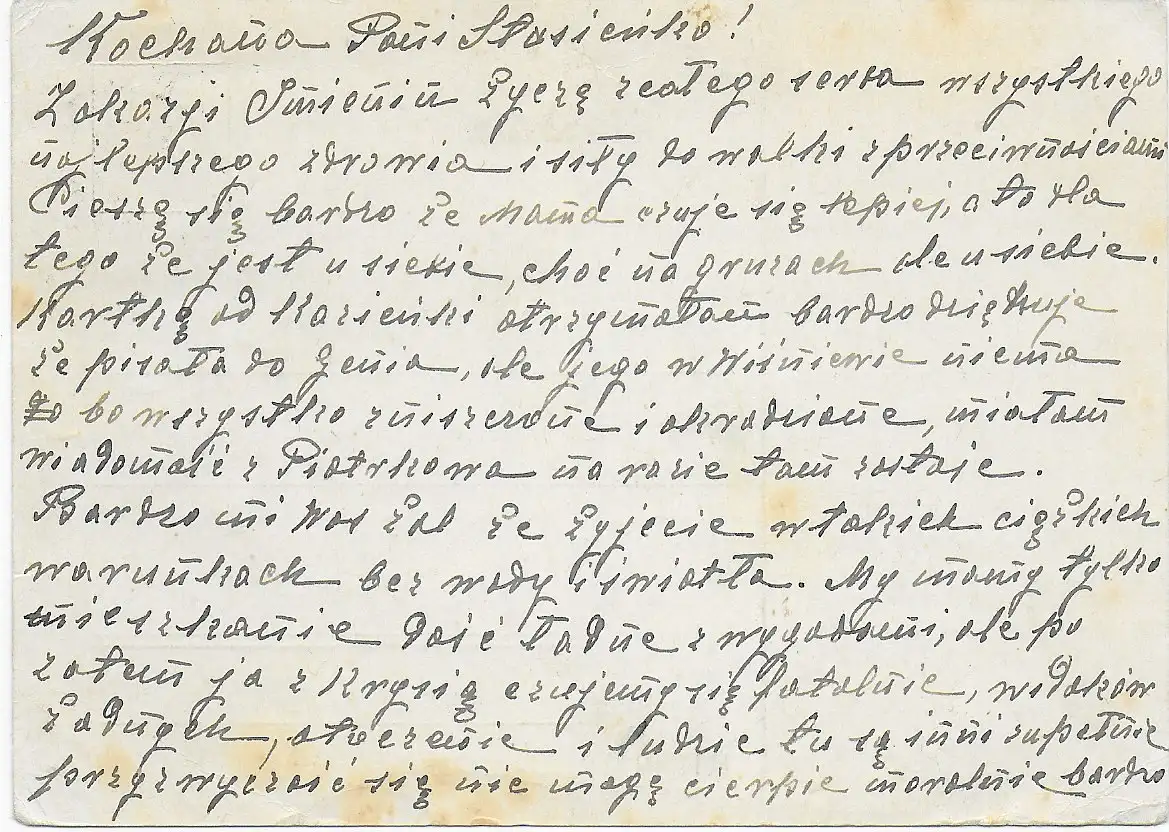 Kochana Pani Stasieńko!
Z okazji Imienin Życzę z całego serca wszystkiego
najlepszego zdrowia i siły do walki z przeciwnościami
Cieszę się bardzo że Mama czuje się lepiej, a to dla
tego że jest u siebie, choć na gruzach ale u siebie.
Kartkę od Kazieńki otrzymałam bardzo dziękuje
że pisała do Genia, ale jego w Wiśniewie niema
bo wszystko zniszczone i okradzione, miałam
wiadomość z Piotrkowa na razie tam zostaje.
Bardzo mi Was żal że żyjecie w takich ciężkich
warunkach bez wody i światła. My mamy tylko
mieszkanie dość ładne z wygodami, ale po
zatem ja z Krysią czujemy się fatalnie, widoków
żadnych, otoczenie i ludzie tu są inni zupełnie
przyzwyczaić się nie mogę cierpie moralnie bardzo